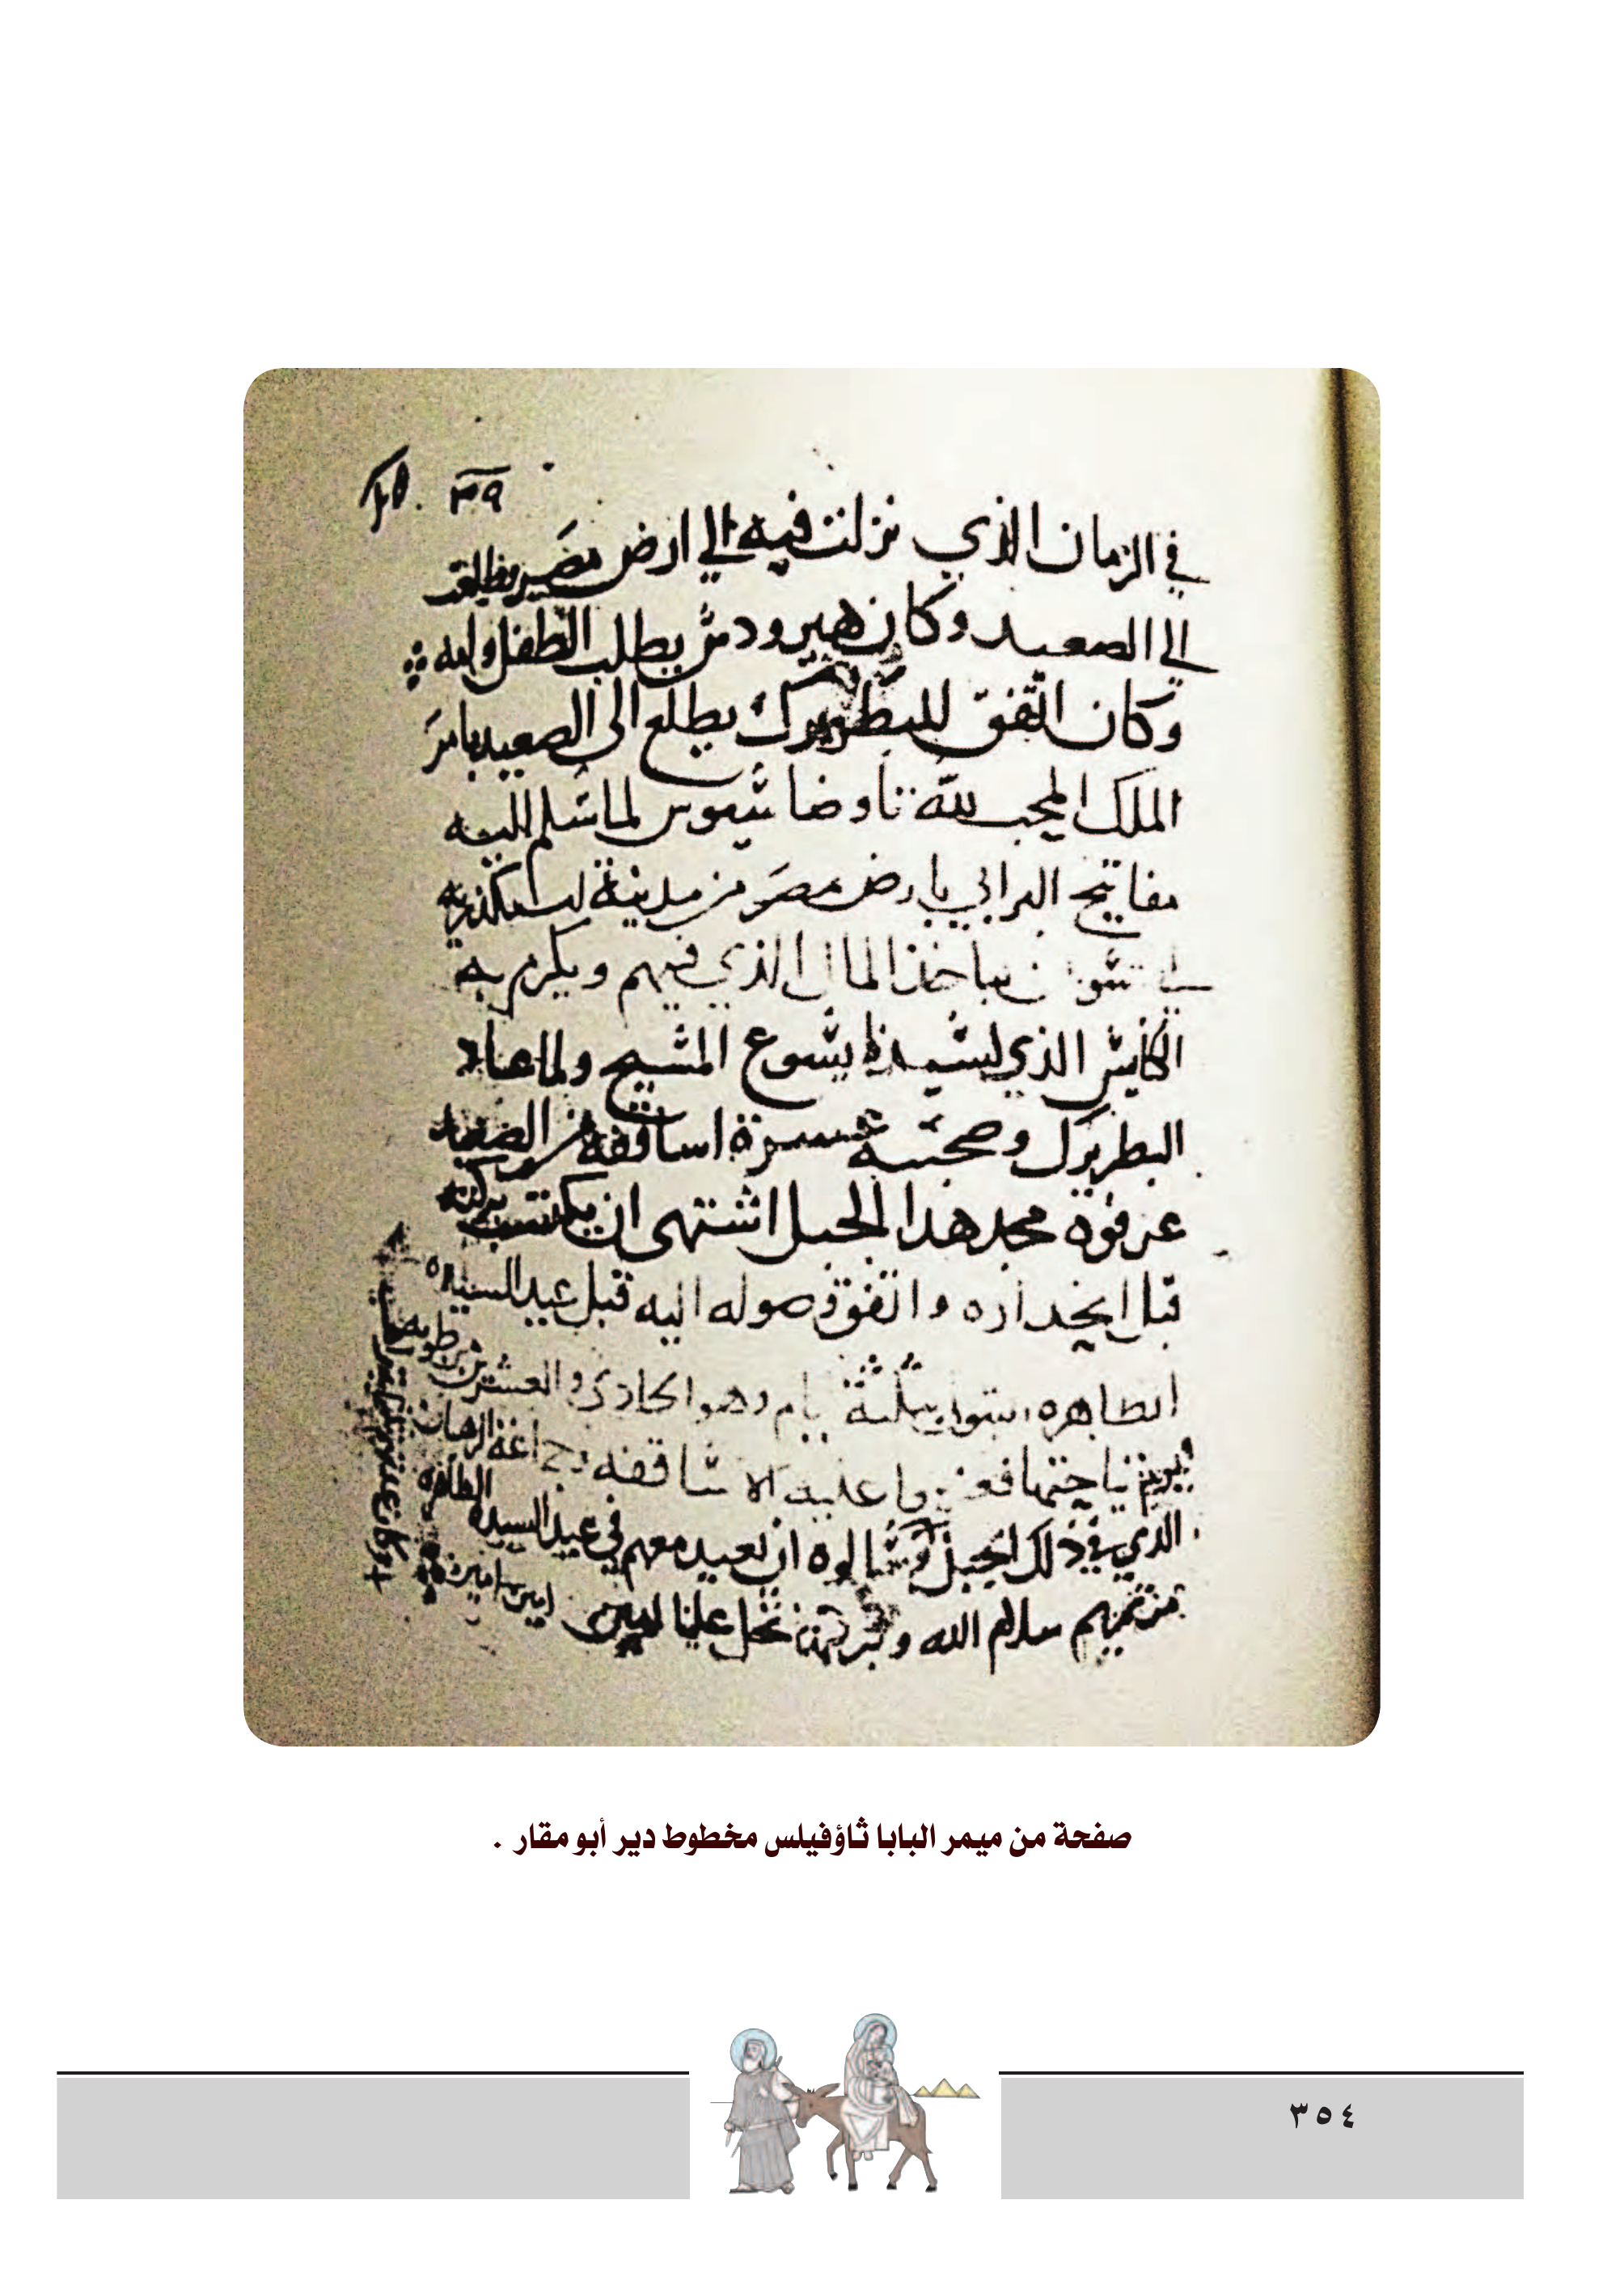 ٣٩
في الزمان الذي نزلت فيه الي ارض مصر
الي الصعيد وكان هيرودس يطلب الطفل وامه
وكان اتفق للبطريرك يطلع الى الصعيد بامر
الملك المحب لله تاوضاسيوس لما سلم اليه
مفاتيح البرابي بارض مصر من مدينة اسكندريه
الى اسوان ياخذ المال الذي فيهم ويكرم به
الكنايس الذي لسيدنا يسوع المسيح ولما عاد
البطريرك وصحبته عشرة اساقفه من الصعيد
عرفوه مجد هدا الجبل اشتهى ان يكتسب بركته
قبل انحداره واتفق وصوله اليه قبل عيد السيده
الطاهره البتول بثلثة ايام وهو الحادي والعشرين من طوبه
نياحتها عليه الاساقفه الرهبان
الذي في ذلك الجبل وسالوه ان يعيد معهم في عيد السيده الطاهره
مرتمريم سلام الله وبركتها تحل علينا امين امين امين
صفحة من ميمر البابا ثاؤفيلس مخطوط دير أبو مقار .
٣٥٤